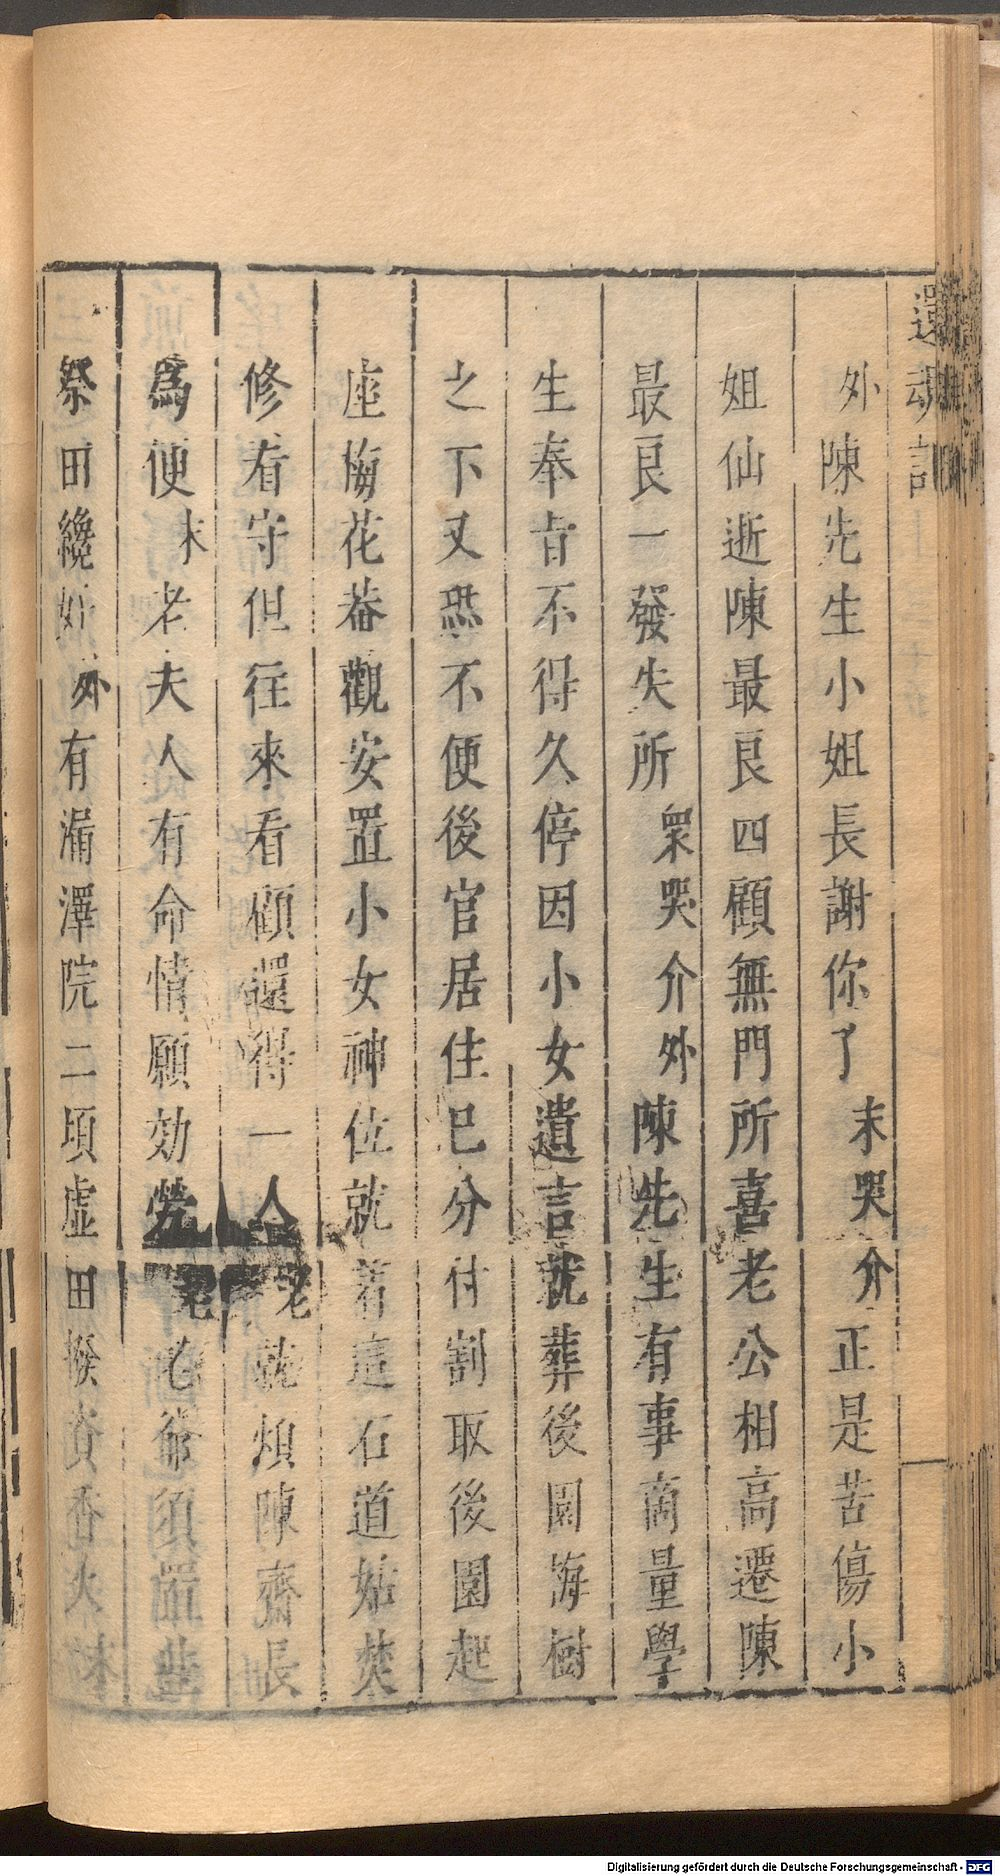 還魂記
外陳先生小姐長謝你了末哭介正是苦傷小
姐仙逝陳最良四顧無門所喜老公相高遷陳
最良一發失所衆哭介外陳先生有事商量學
生奉旨不得久停因小女遺言就葬後園梅樹
之下又恐不便後官居住已分付割取後園起
座梅花菴觀安置小女神位就着這石道姑焚
修看守但往來看顧還得一人老就煩陳齋長
爲便末老夫人有命情願効勞老老爺須置些
祭田纔好外有漏澤院二頃虛田撥資香火末
Digitalisierung gefördert durch die Deutsche Forschungsgemeinschaft - DFG